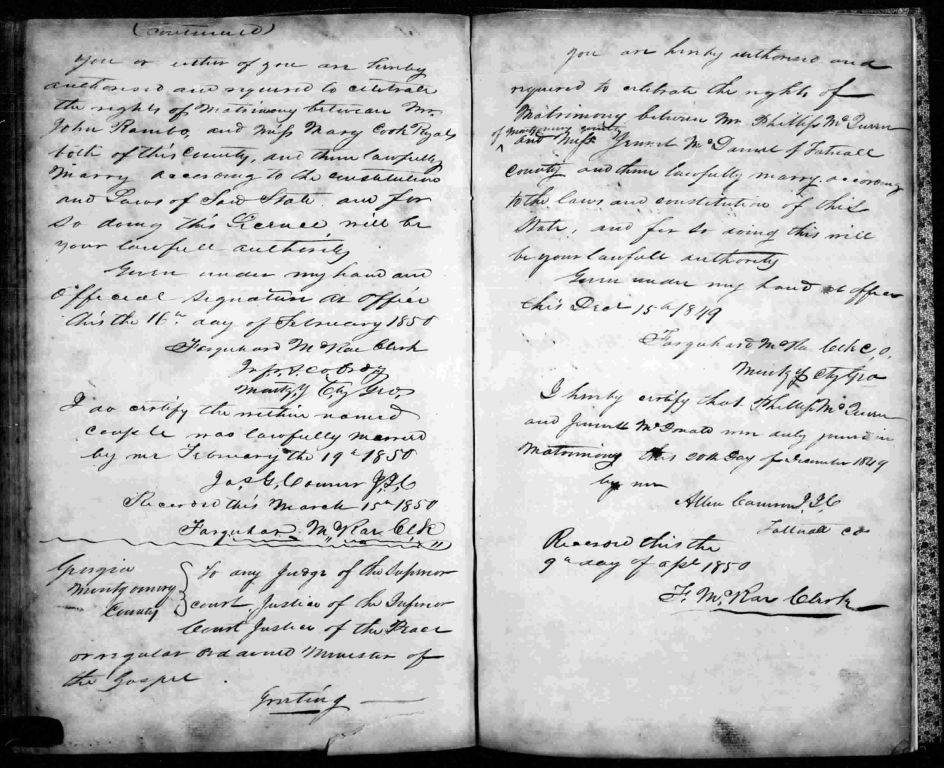 (Continued)
You or either of you are hereby
authorised and required to celebrate
the rights of Matrimony between Mr
John Rambo, and Miss Mary Cook Ryals
both of this County, and them lawfully
Marry according to the constitution
and Laws of Said State and for
so doing this License will be
your lawfull authority
Given under my hand and
Official Signature at office
this the 16th day of February 1850
Farquhard McRae Clerk
Montg'y Cty Geo
I do certify the within named
couple was lawfully married
by me February the 19th 1850
Jas G. Conner J.I.C
Record this March 15th 1850
Farquhar McRae Clk
Georgia
Montgomery
County
To any Judge of the Superior
court, Justice of the Inferior
Court Justice of the Peace
or regular ordained Minister of
the Gospel
Greeting
You are hereby authorised and
required to celebrate the rights of
Matrimony between Mr Phillip McQueen
of Montgomery county
and Miss McDanell of Tatnall
county and them lawfully marry according
to the laws and constitution of this
State, and for so doing this will
be your lawfull authority
Given under my hand at office
this Decr 15th 1849
Farquhard McRae Clk C.O.
Montg'y Cty Geo
I hereby certify that Phillip McQueen
and McDonald were duly joined in
Matrimony this 20th Day of December 1849
by me
Allen
Tattnall co
Record this the
9th day of Apl 1850
F. McRae Clerk